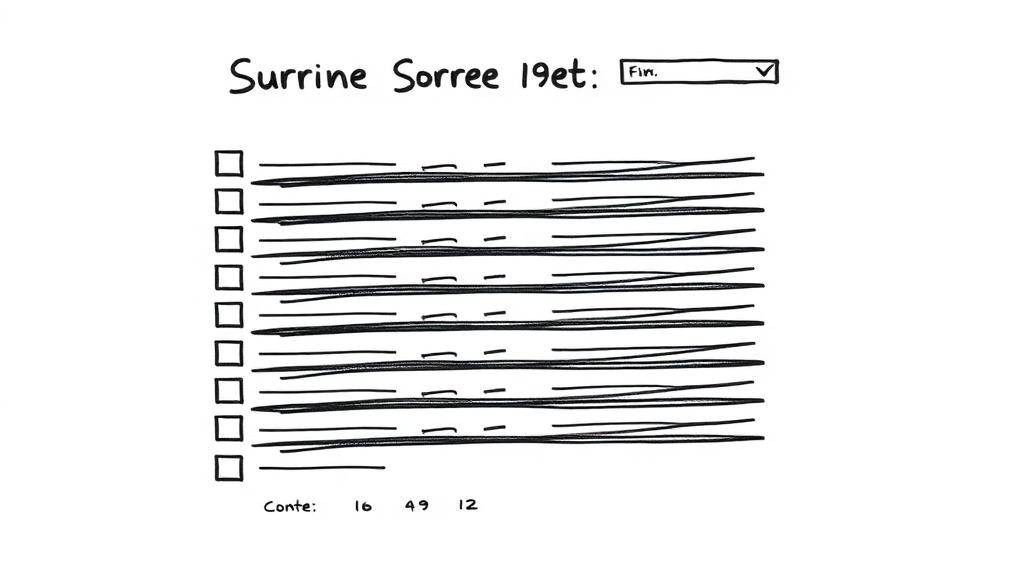 Surrine Sorree 19et: Fin.
Conte: 16 49 12